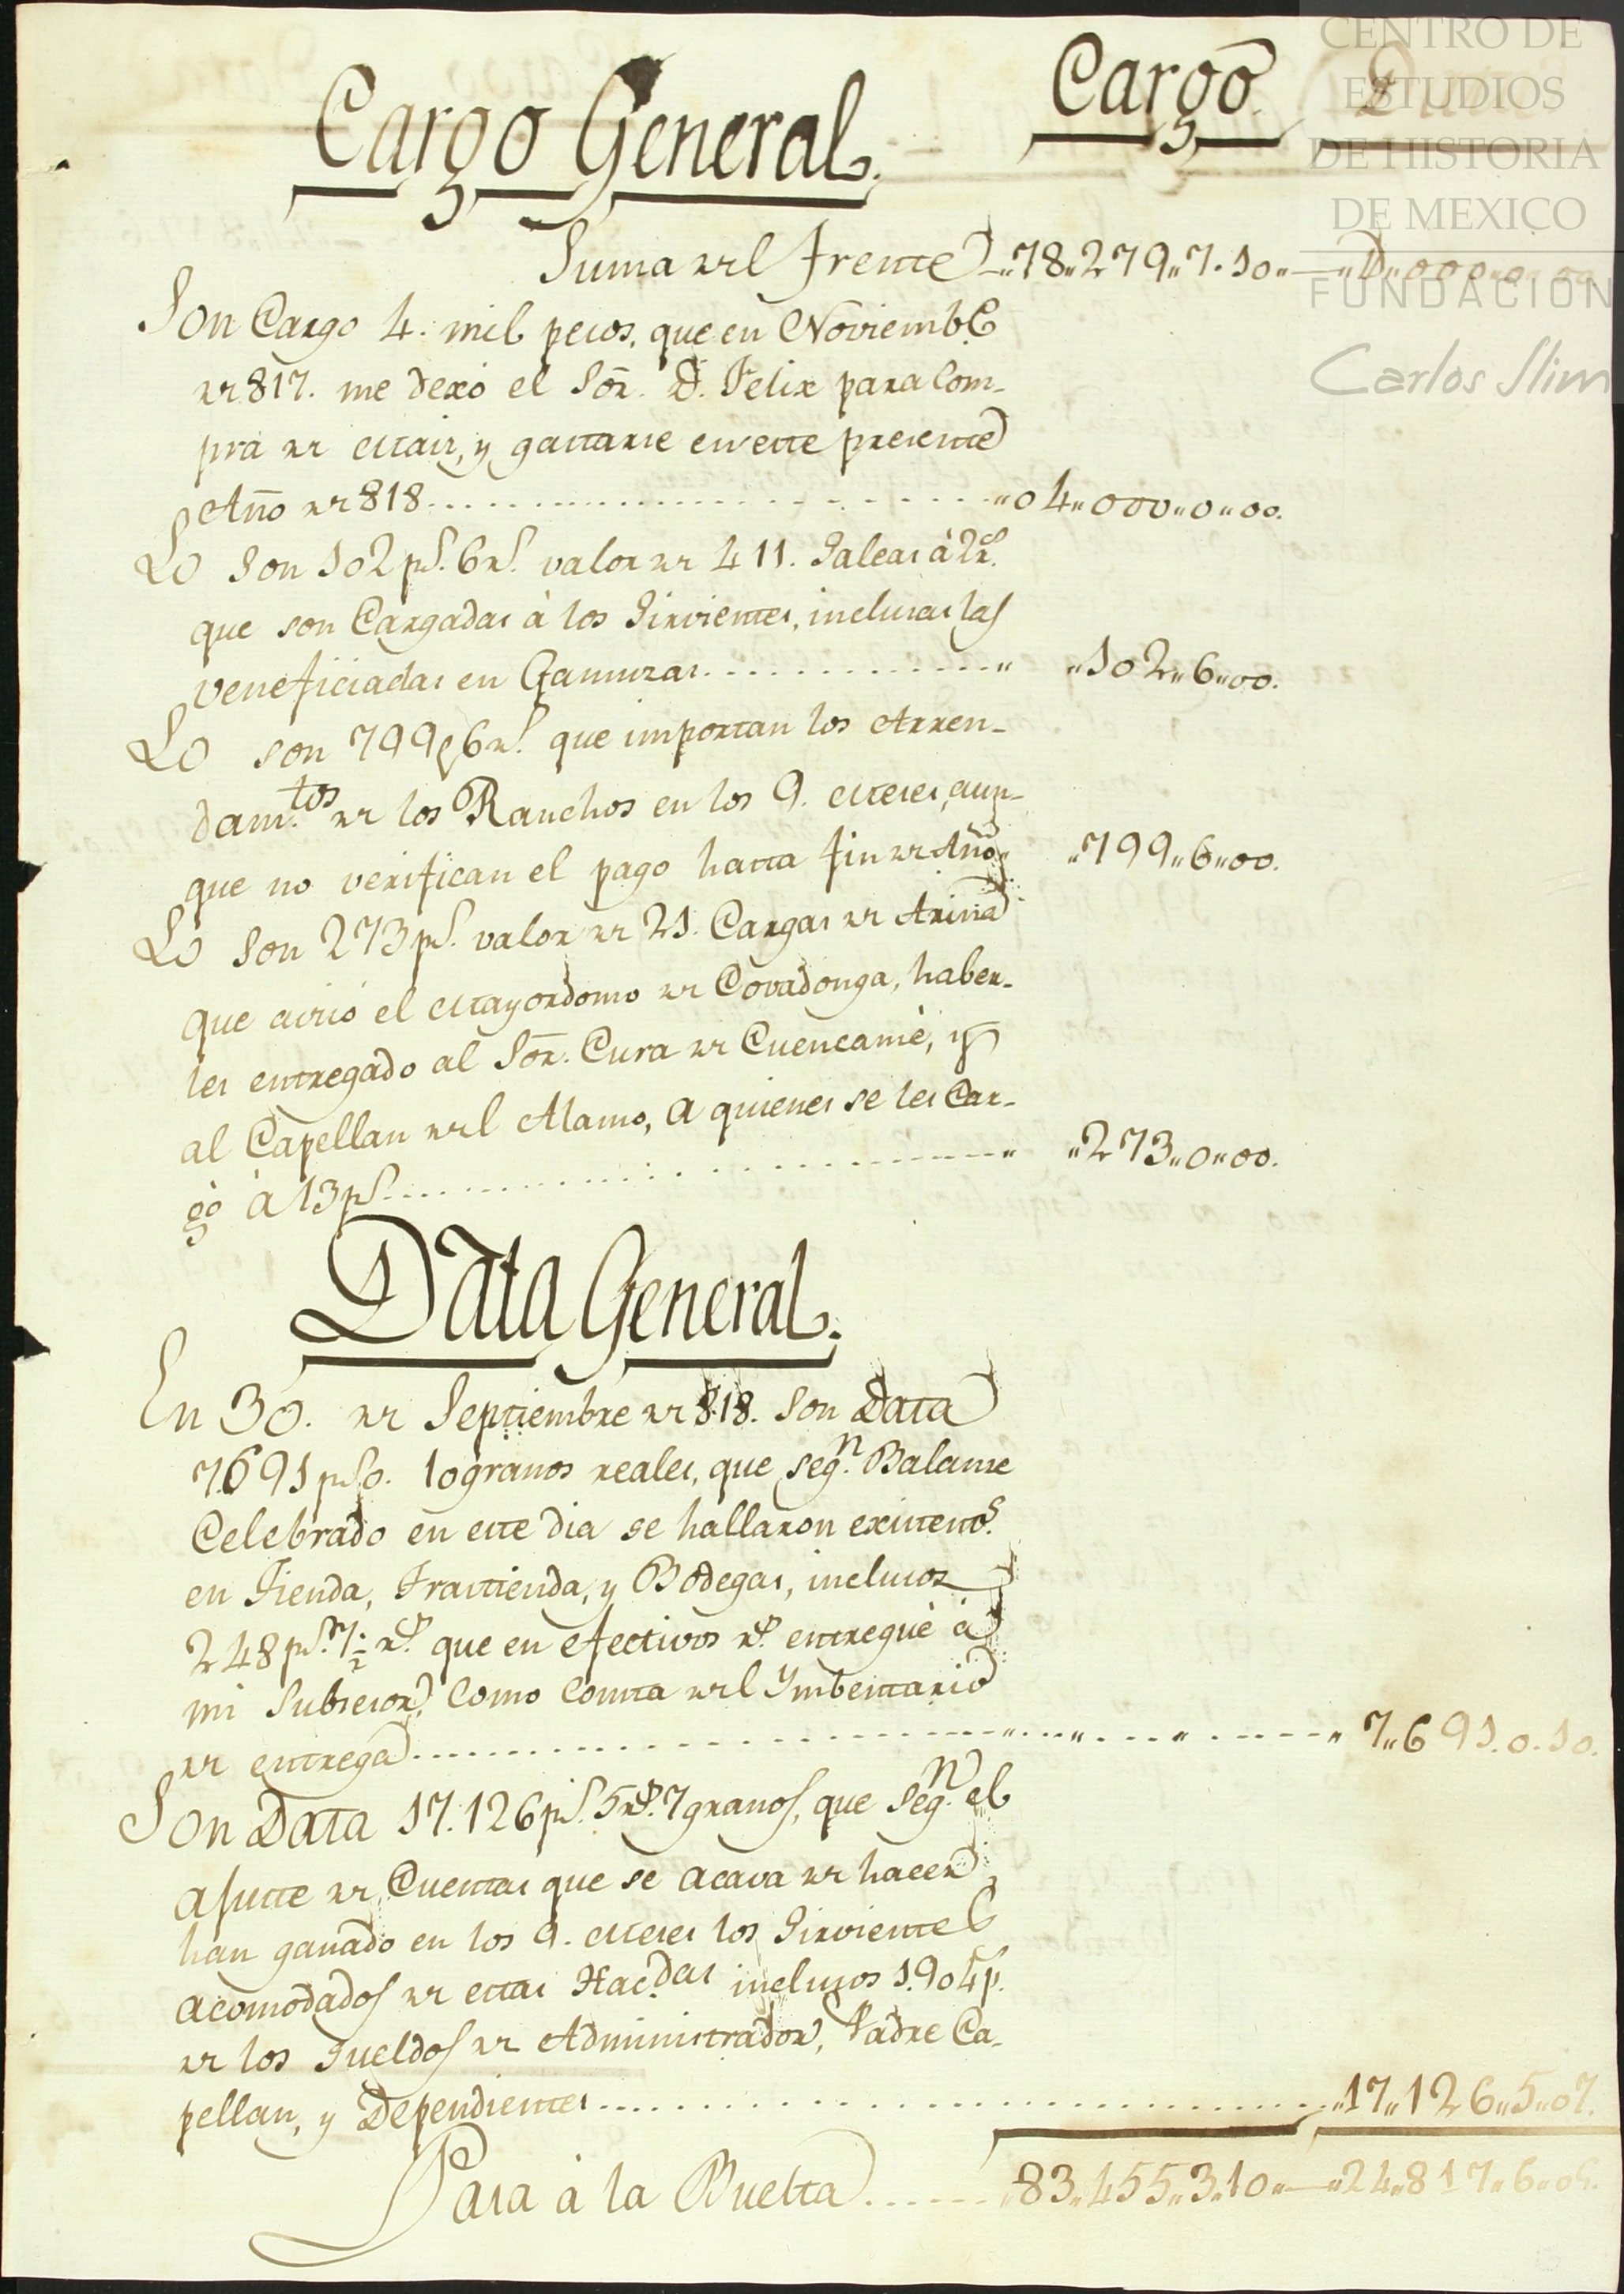 CENTRO DE
ESTUDIOS
DE HISTORIA
DE MEXICO
FUNDACION
Carlos Slim
Cargo General.
Cargo.
Suma del frente „78„279„7.10„ „D„000„0„00
Son Cargo 4. mil pesos, que en Noviembe
de 817. me dexó el Sōr. D. Felix para com-
pra de Maiz, y gastarse en este presente
Año de 818 „04„000„0„00.
Lo Son 102 ps. 6 rs. valor de 411. Saleas à 2 rs.
que son Cargadas à los Sirvientes, inclusas las
veneficiadas en Gamuzas „ „102„6„00.
Lo son 799 p 6 rs. que importan los Arren-
damtos. de los Ranchos en los 9. Meses, aun-
que no verifican el pago hasta fin de Año „ „799„6„00.
Lo Son 273 ps. valor de 21. Cargas de Arina
que avisó el Mayordomo de Covadonga, haber-
les entregado al Sōr. Cura de Cuencamè, y
al Capellan del Alamo, a quienes se les Car-
gò à 13 ps. „ „273„0„00.
Data General.
En 30. de Septiembre de 818. Son Data
7691 ps. 0. 10 granos reales, que segn. Balanse
Celebrado en este dia se hallaron existents.
en Tienda, Trastienda, y Bodegas, inclusos
248 ps. 7½ rs. que en efectivos rs. entreguè à
mi Subsesor, como consta del Ymbentario
de entrega „ 7„691.0.10.
Son Data 17.126 ps. 5 rs. 7 granos, que Segn. el
ajuste de Cuentas que se acava de hacer
han ganado en los 9. Meses los Sirvientes
acomodados de estas Hacdas. inclusos 1.904 p.
de los Sueldos de Administrador, Padre Ca-
pellan, y Dependientes „17„126„5„07.
Pasa à la Buelta „83„455„3„10„ „24„817„6„05.